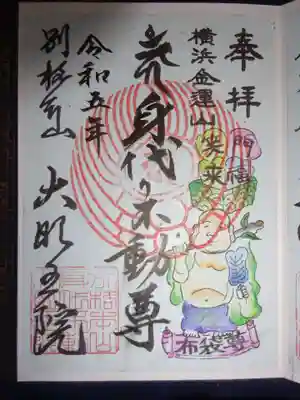 奉拝
横浜金運山
笑門来福
布袋尊
身代り不動尊
令和五年
別格本山 大明王院